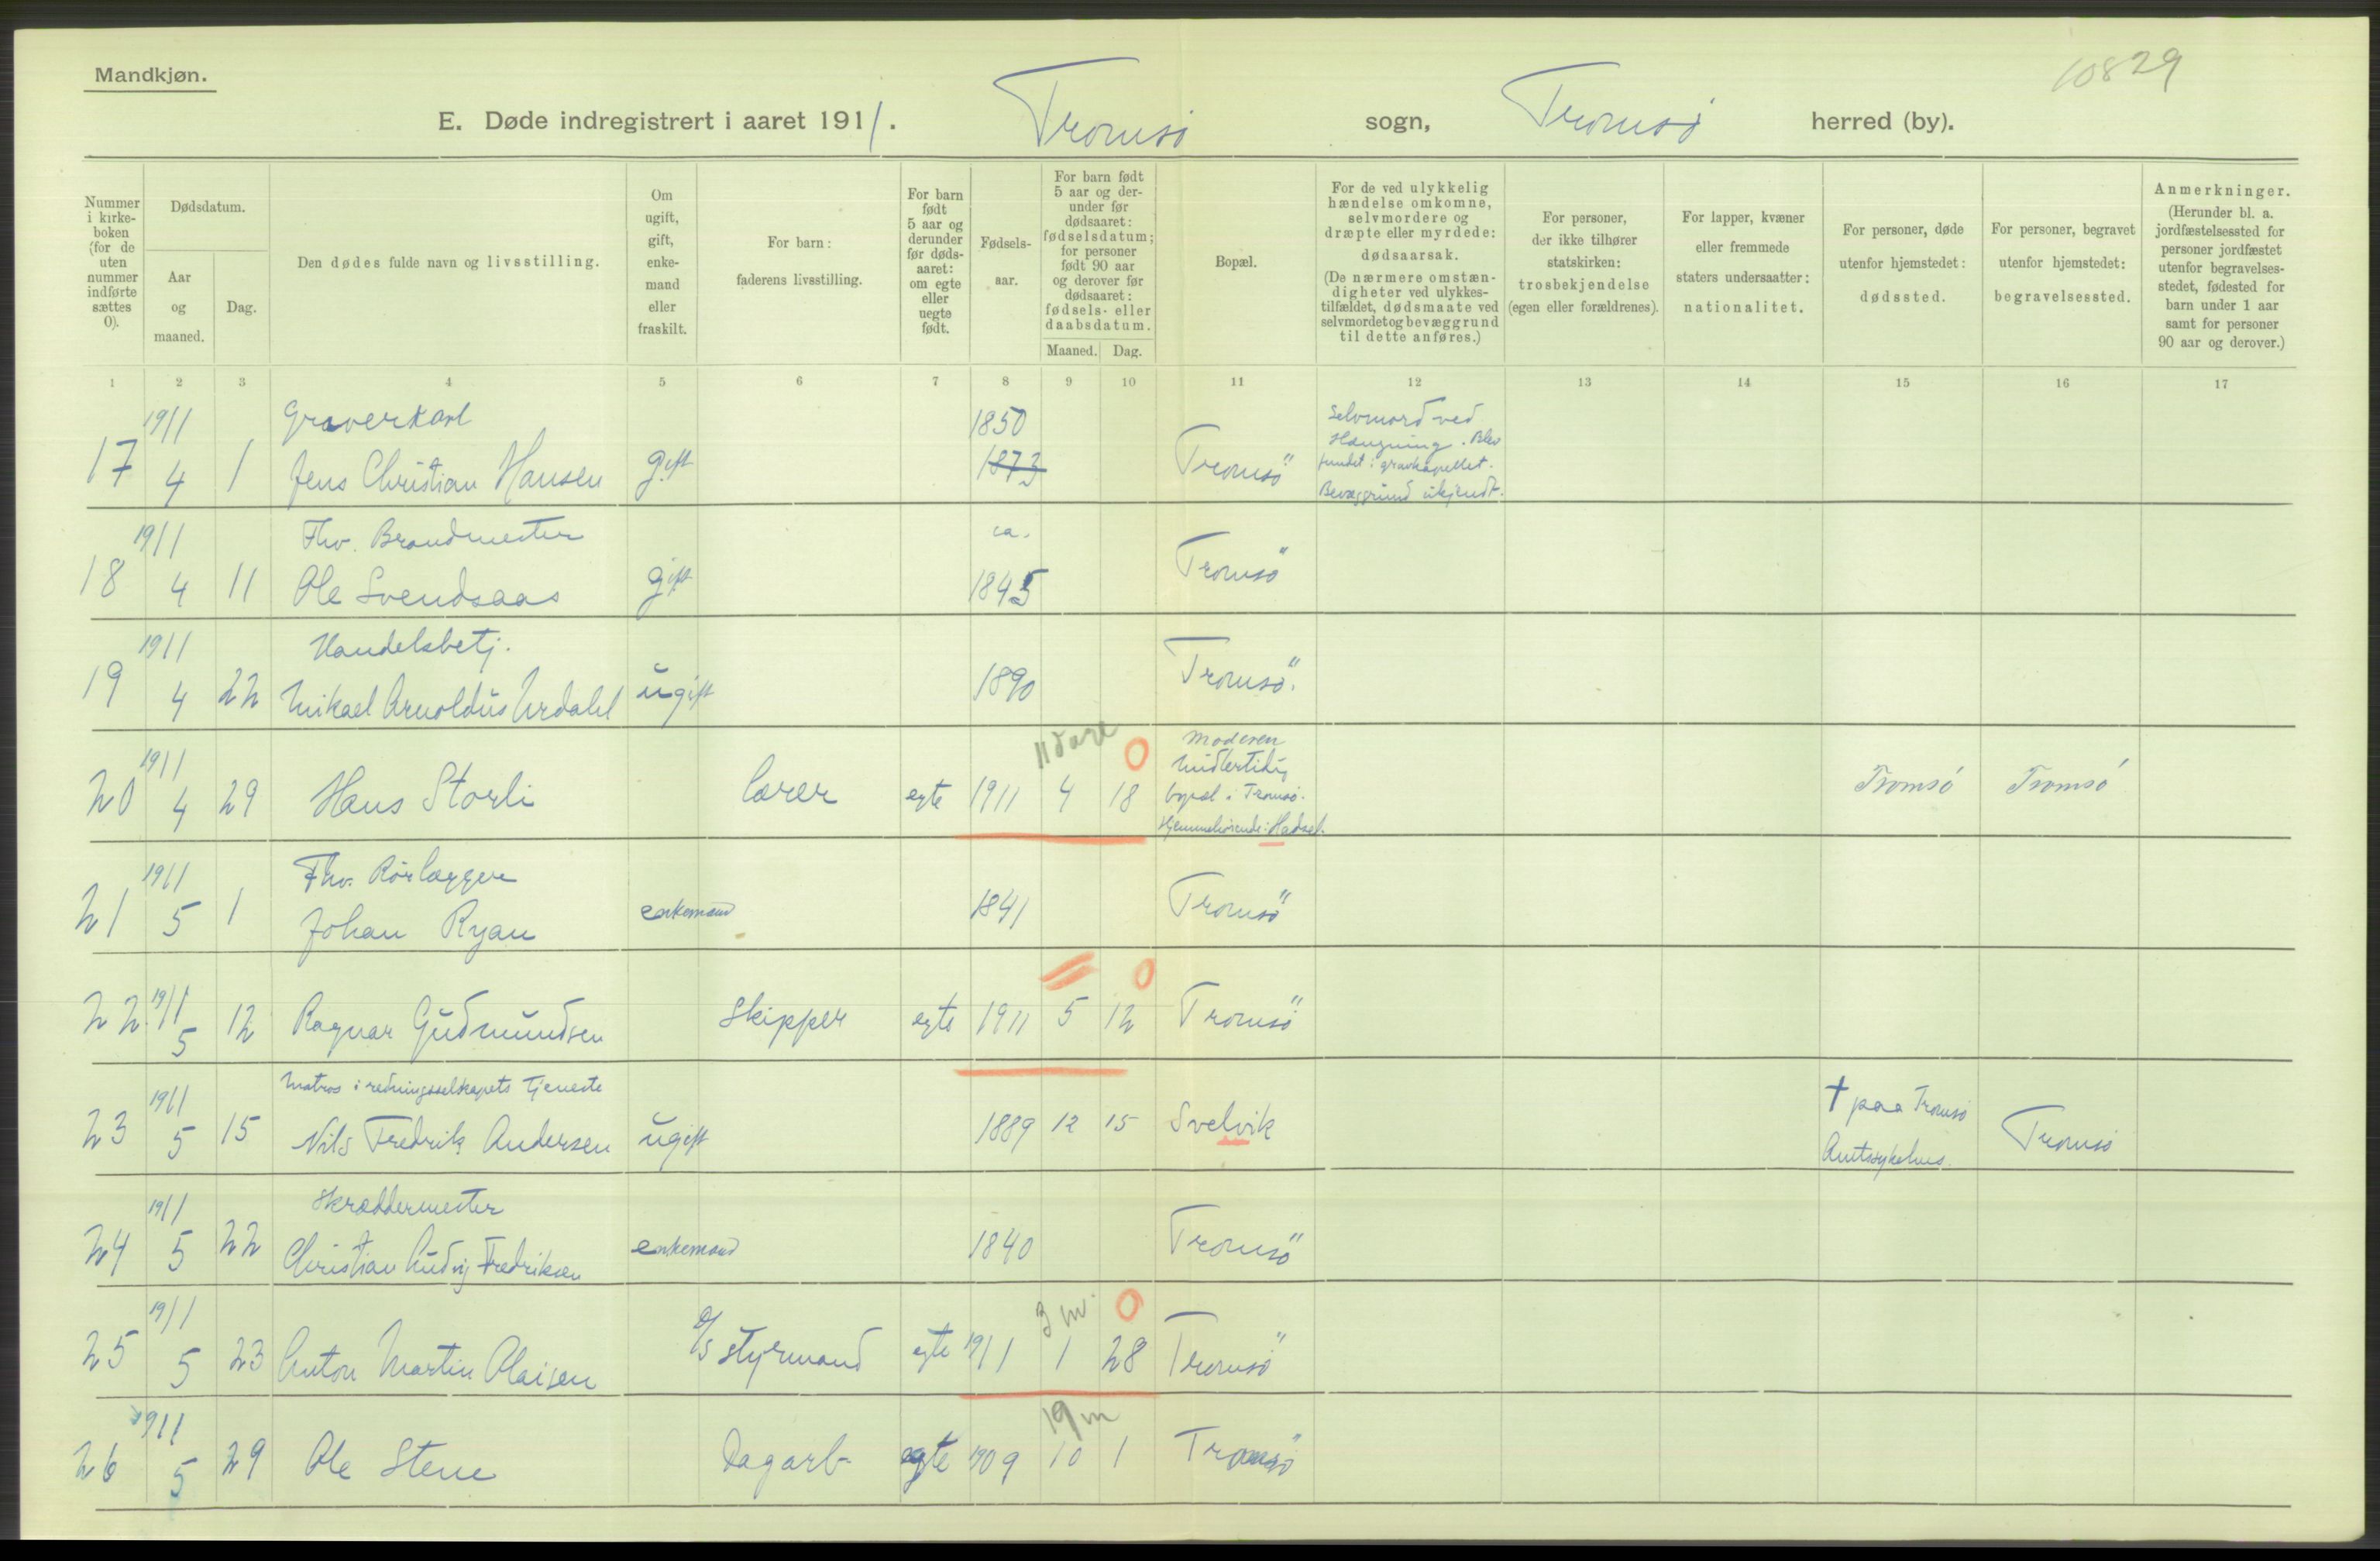 Mandkjøn.
10829
E. Døde indregistrert i aaret 1911. Tromsö sogn, Tromsö herred (by).
Nummer i kirke-boken (for de uten nummer indførte sættes 0).
Dødsdatum.
Aar og maaned.
Dag.
Den dødes fulde navn og livsstilling.
Om ugift, gift, enke-mand eller fraskilt.
For barn: faderens livsstilling.
For barn født 5 aar og derunder før døds-aaret: om egte eller uegte født.
Fødsels-aar.
For barn født 5 aar og der-under før dødsaaret: fødselsdatum; for personer født 90 aar og derover før dødsaaret: fødsels- eller daabsdatum.
Maaned. Dag.
Bopæl.
For de ved ulykkelig hændelse omkomne, selvmordere og dræpte eller myrdede: dødsaarsak. (De nærmere omstæn-digheter ved ulykkes-tilfældet, dødsmaate ved selvmord et og bevæggrund til dette anføres.)
For personer, der ikke tilhører statskirken: trosbekjendelse (egen eller forældrenes).
For lapper, kvæner eller fremmede staters undersaatter: nationalitet.
For personer, døde utenfor hjemstedet: dødssted.
For personer, begravet utenfor hjemstedet: begravelsessted.
Anmerkninger. (Herunder bl. a. jordfæstelsessted for personer jordfæstet utenfor begravelses-stedet, fødested for barn under 1 aar samt for personer 90 aar og derover.)
1 2 3 4 5 6 7 8 9 10 11 12 13 14 15 16 17
1911 Graverkarl 1850 Selvmord ved
Hængning. Blev
17 4 1 Jens Christian Hansen gift 1873 Tromsö fundet i gravkapellet.
Bevæggrund ukjendt.
1911 Fhv. Brandmester ca.
18 4 11 Ole Svendsaas gift 1845 Tromsö
1911 Handelsbetj.
19 4 22 Mikael Arnoldus Urdahl ugift 1890 Tromsö.
11 dare 0 Moderen
1911 midlertidig
20 4 29 Hans Storli lærer egte 1911 4 18 bopæl i Tromsö. Tromsö Tromsö
Hjemmehörende: Hadsel.
1911 Fhv. Rörlægger
21 5 1 Johan Ryan enkemand 1841 Tromsö
0
22. 1911 5 12 Ragnar Gudmundsen Skipper egte 1911 5 12 Tromsö
1911 Matros i redningsselskapets tjeneste † paa Tromsö
23 5 15 Nils Fredrik Andersen ugift 1889 12 15 Svelvik Amtssykehus. Tromsö
1911 Skræddermester
24 5 22 Christian Ludvig Fredriksen enkemand 1840 Tromsö
1911 3 m. 0
25 5 23 Anton Martin Olaisen styrmand egte 1911 1 28 Tromsö
1911 19 m
26 5 29 Ole Stene Dagarb- egte 1909 10 1 Tromsö